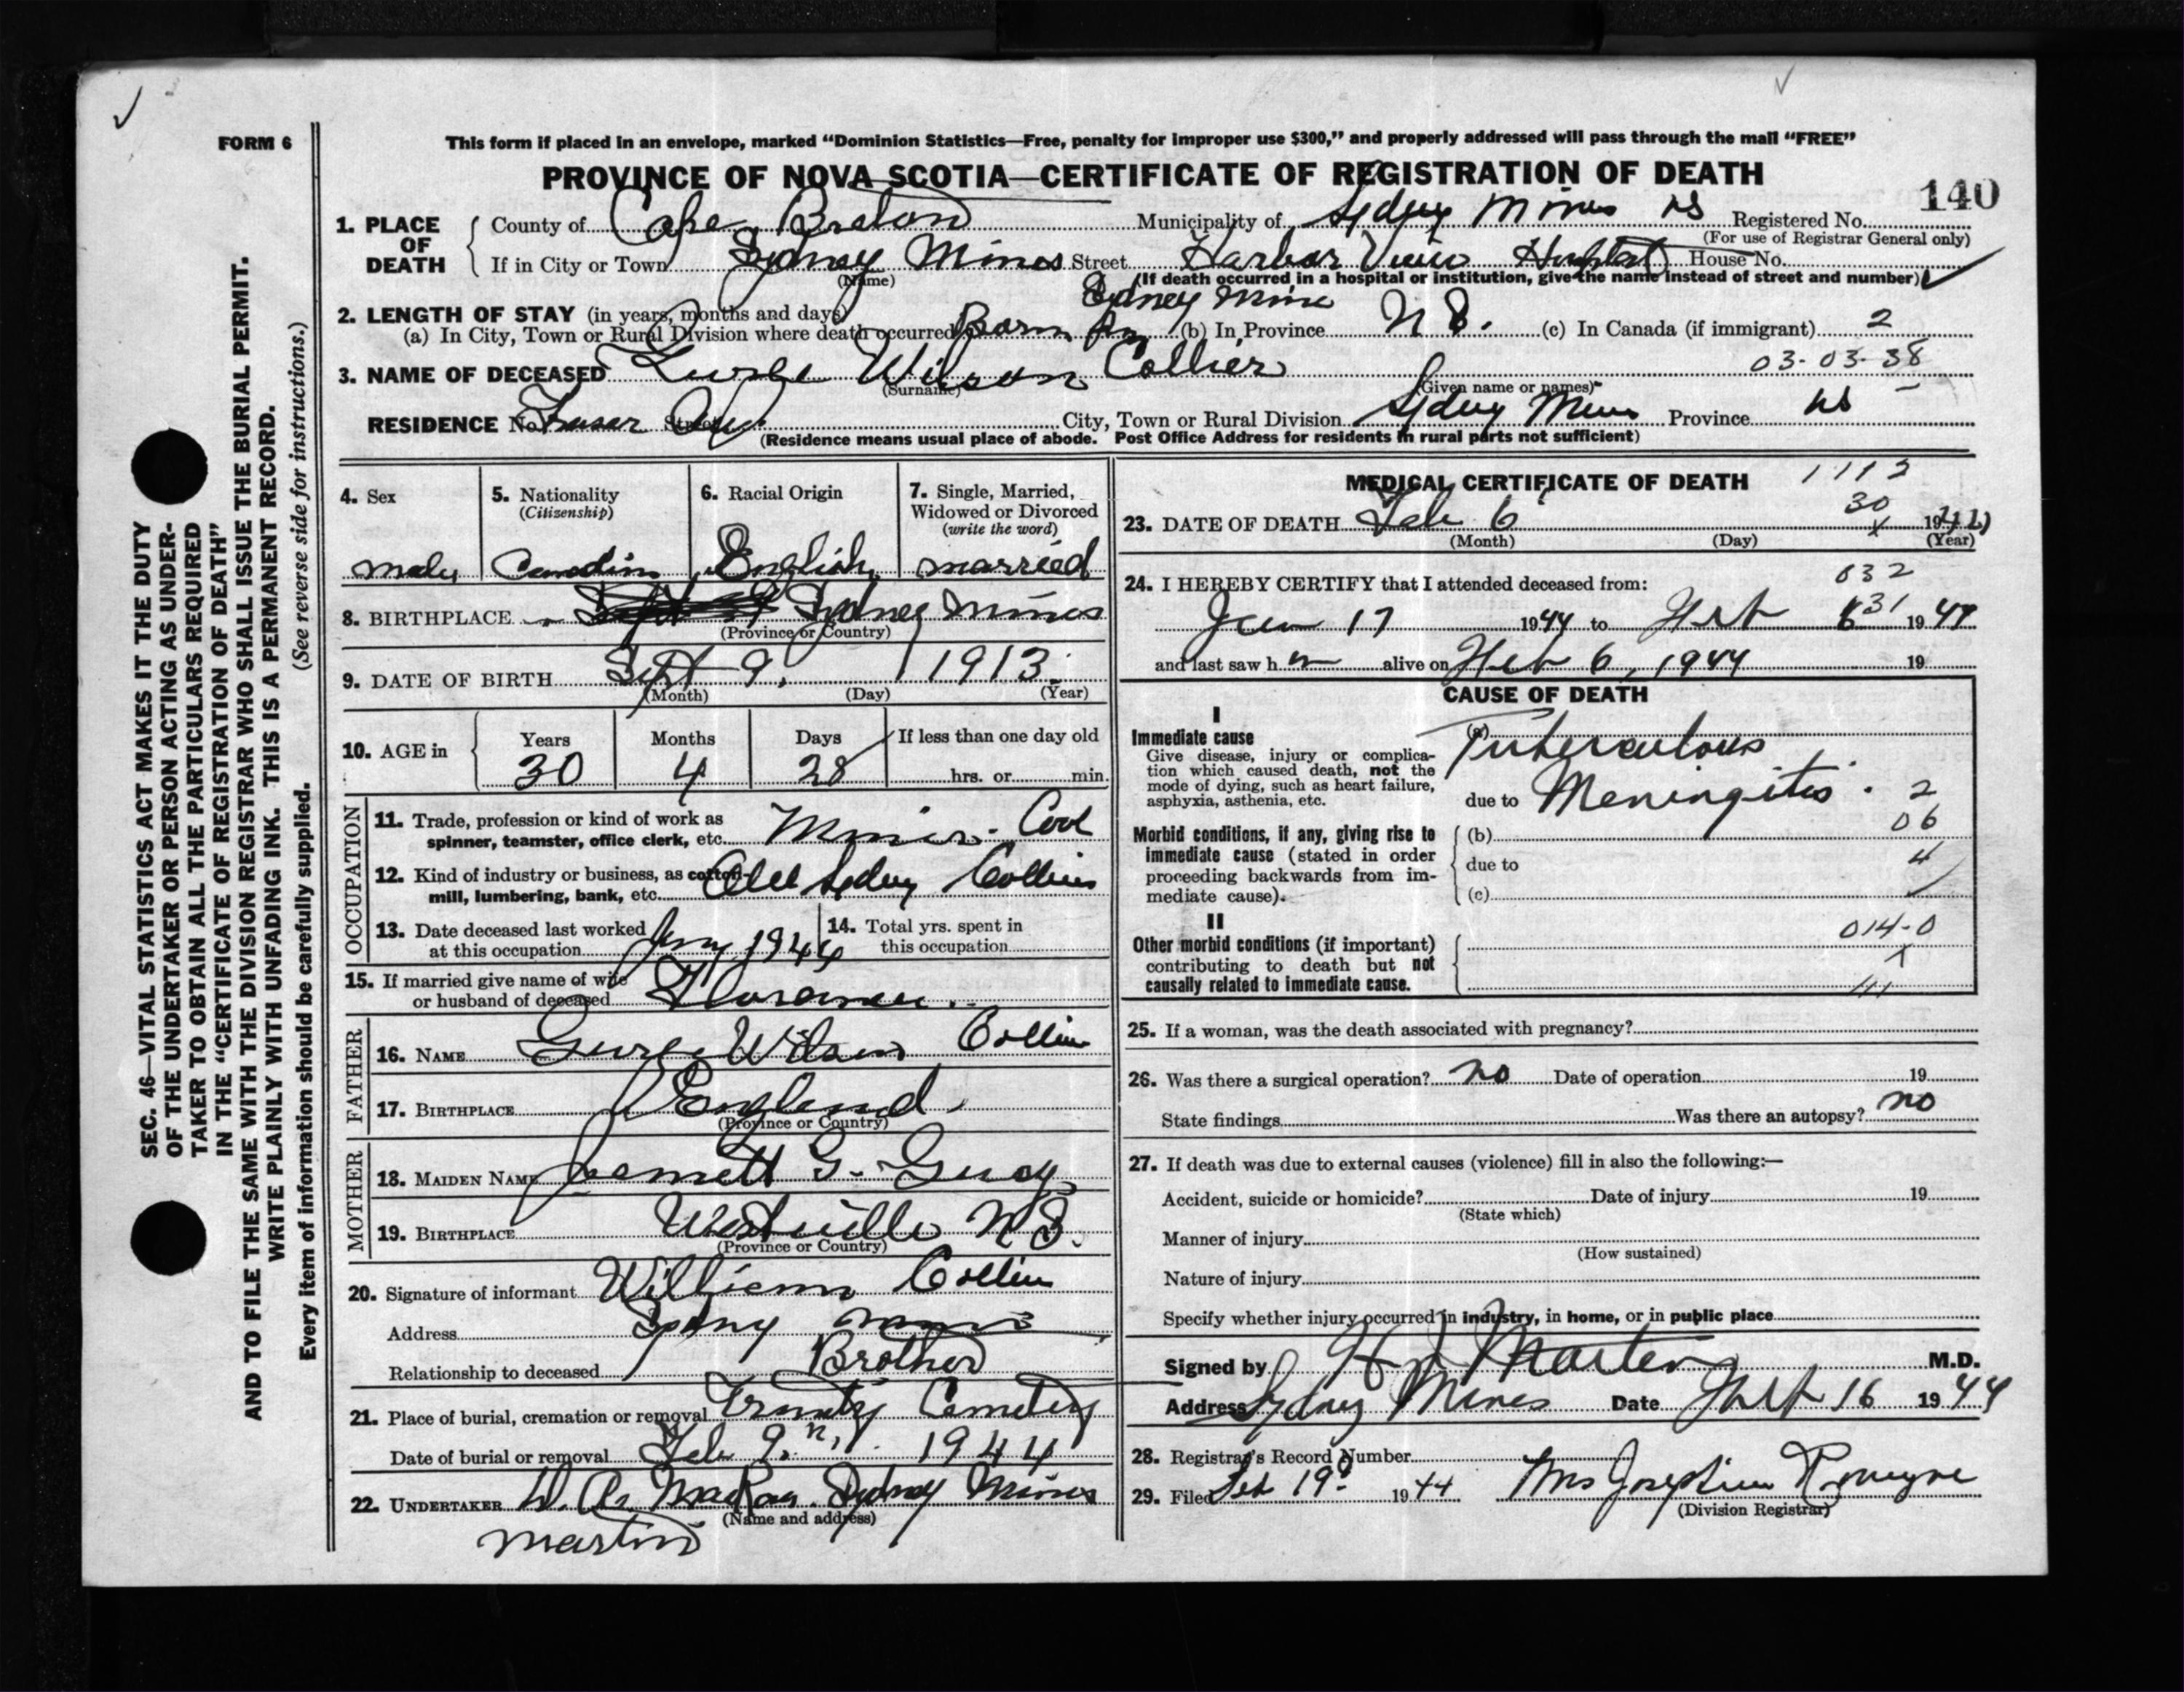 FORM 6
This form if placed in an envelope, marked “Dominion Statistics—Free, penalty for improper use $300,” and properly addressed will pass through the mail “FREE”
PROVINCE OF NOVA SCOTIA—CERTIFICATE OF REGISTRATION OF DEATH
140
1. PLACE OF DEATH
County of Cape Breton Municipality of Sydney Mines NS Registered No.
(For use of Registrar General only)
If in City or Town Sydney Mines Street Harbor View Hospital House No.
(Name) (If death occurred in a hospital or institution, give the name instead of street and number)
Sydney Mine
2. LENGTH OF STAY (in years, months and days)
(a) In City, Town or Rural Division where death occurred Born in (b) In Province N S. (c) In Canada (if immigrant) 2
3. NAME OF DECEASED George Wilson Collier 03-03-38
(Surname) (Given name or names)
RESIDENCE No. Fraser Street City, Town or Rural Division Sydney Mines Province NS
(Residence means usual place of abode. Post Office Address for residents in rural parts not sufficient)
4. Sex
male
5. Nationality
(Citizenship)
Canadian
6. Racial Origin
English
7. Single, Married, Widowed or Divorced
(write the word)
married
8. BIRTHPLACE Sydney Mines
(Province or Country)
9. DATE OF BIRTH Sept 9, 1913.
(Month) (Day) (Year)
10. AGE in
Years Months Days If less than one day old
30 4 28 hrs. or min.
OCCUPATION
11. Trade, profession or kind of work as
spinner, teamster, office clerk, etc. Miner.
12. Kind of industry or business, as cotton-
mill, lumbering, bank, etc. Sydney
13. Date deceased last worked
at this occupation 1944
14. Total yrs. spent in
this occupation
15. If married give name of wife
or husband of deceased Florence
FATHER
16. NAME George Wilson
17. BIRTHPLACE England
(Province or Country)
MOTHER
18. MAIDEN NAME
19. BIRTHPLACE Westville N S.
(Province or Country)
20. Signature of informant William
Address Sydney Mines
Relationship to deceased Brother
21. Place of burial, cremation or removal Trinity Cemetery
Date of burial or removal Feb 9th, 1944
22. UNDERTAKER Sydney Mines
(Name and address)
Martin
MEDICAL CERTIFICATE OF DEATH 1112
30
23. DATE OF DEATH Feb 6 1944
(Month) (Day) (Year)
032
24. I HEREBY CERTIFY that I attended deceased from:
Jan 17 1944 to Feb 6 31 1944
and last saw h m alive on Feb 6, 1944 19
CAUSE OF DEATH
I
Immediate cause
Give disease, injury or complica-
tion which caused death, not the
mode of dying, such as heart failure,
asphyxia, asthenia, etc.
(a) Tuberculous
due to Meningitis. 2
06
Morbid conditions, if any, giving rise to
immediate cause (stated in order
proceeding backwards from im-
mediate cause).
(b)
due to 4
(c)
II
Other morbid conditions (if important)
contributing to death but not
causally related to immediate cause.
014-0
25. If a woman, was the death associated with pregnancy?
26. Was there a surgical operation? no Date of operation 19
State findings Was there an autopsy? no
27. If death was due to external causes (violence) fill in also the following:—
Accident, suicide or homicide? Date of injury 19
(State which)
Manner of injury
(How sustained)
Nature of injury
Specify whether injury occurred in industry, in home, or in public place
Signed by Martin M.D.
Address Sydney Mines Date Feb 16 1944
28. Registrar's Record Number
29. Filed Feb 19 1944 Mrs Josephine
(Division Registrar)
SEC. 46—VITAL STATISTICS ACT MAKES IT THE DUTY
OF THE UNDERTAKER OR PERSON ACTING AS UNDER-
TAKER TO OBTAIN ALL THE PARTICULARS REQUIRED
IN THE “CERTIFICATE OF REGISTRATION OF DEATH”
AND TO FILE THE SAME WITH THE DIVISION REGISTRAR WHO SHALL ISSUE THE BURIAL PERMIT.
WRITE PLAINLY WITH UNFADING INK. THIS IS A PERMANENT RECORD.
Every item of information should be carefully supplied. (See reverse side for instructions.)